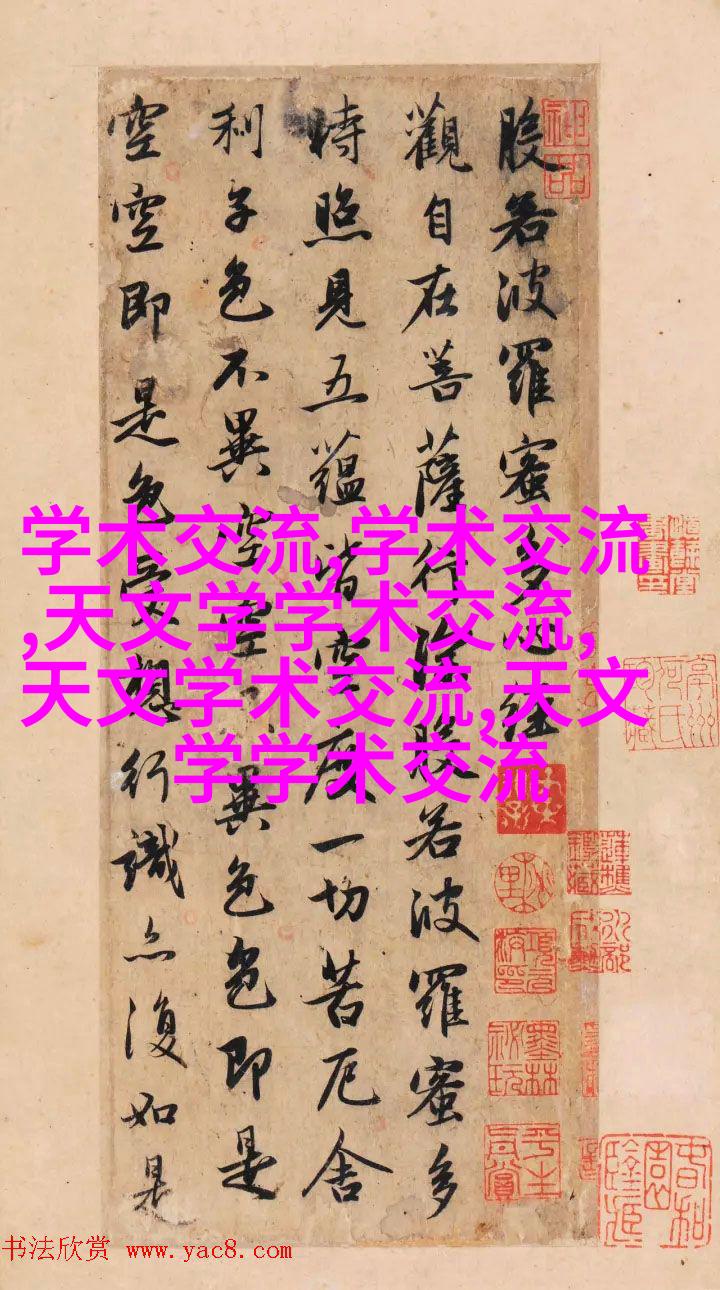 般若波羅蜜多心經
觀自在菩薩行深般若波羅蜜多
時照見五蘊皆空度一切苦厄舍
利子色不異空空不異色色即是
空空即是色受想行識亦復如是
学术交流,学术交流
,天文学学术交流,
天文学术交流,天文
学学术交流
神品
墨林
祕玩
书法欣赏 www.yac8.com